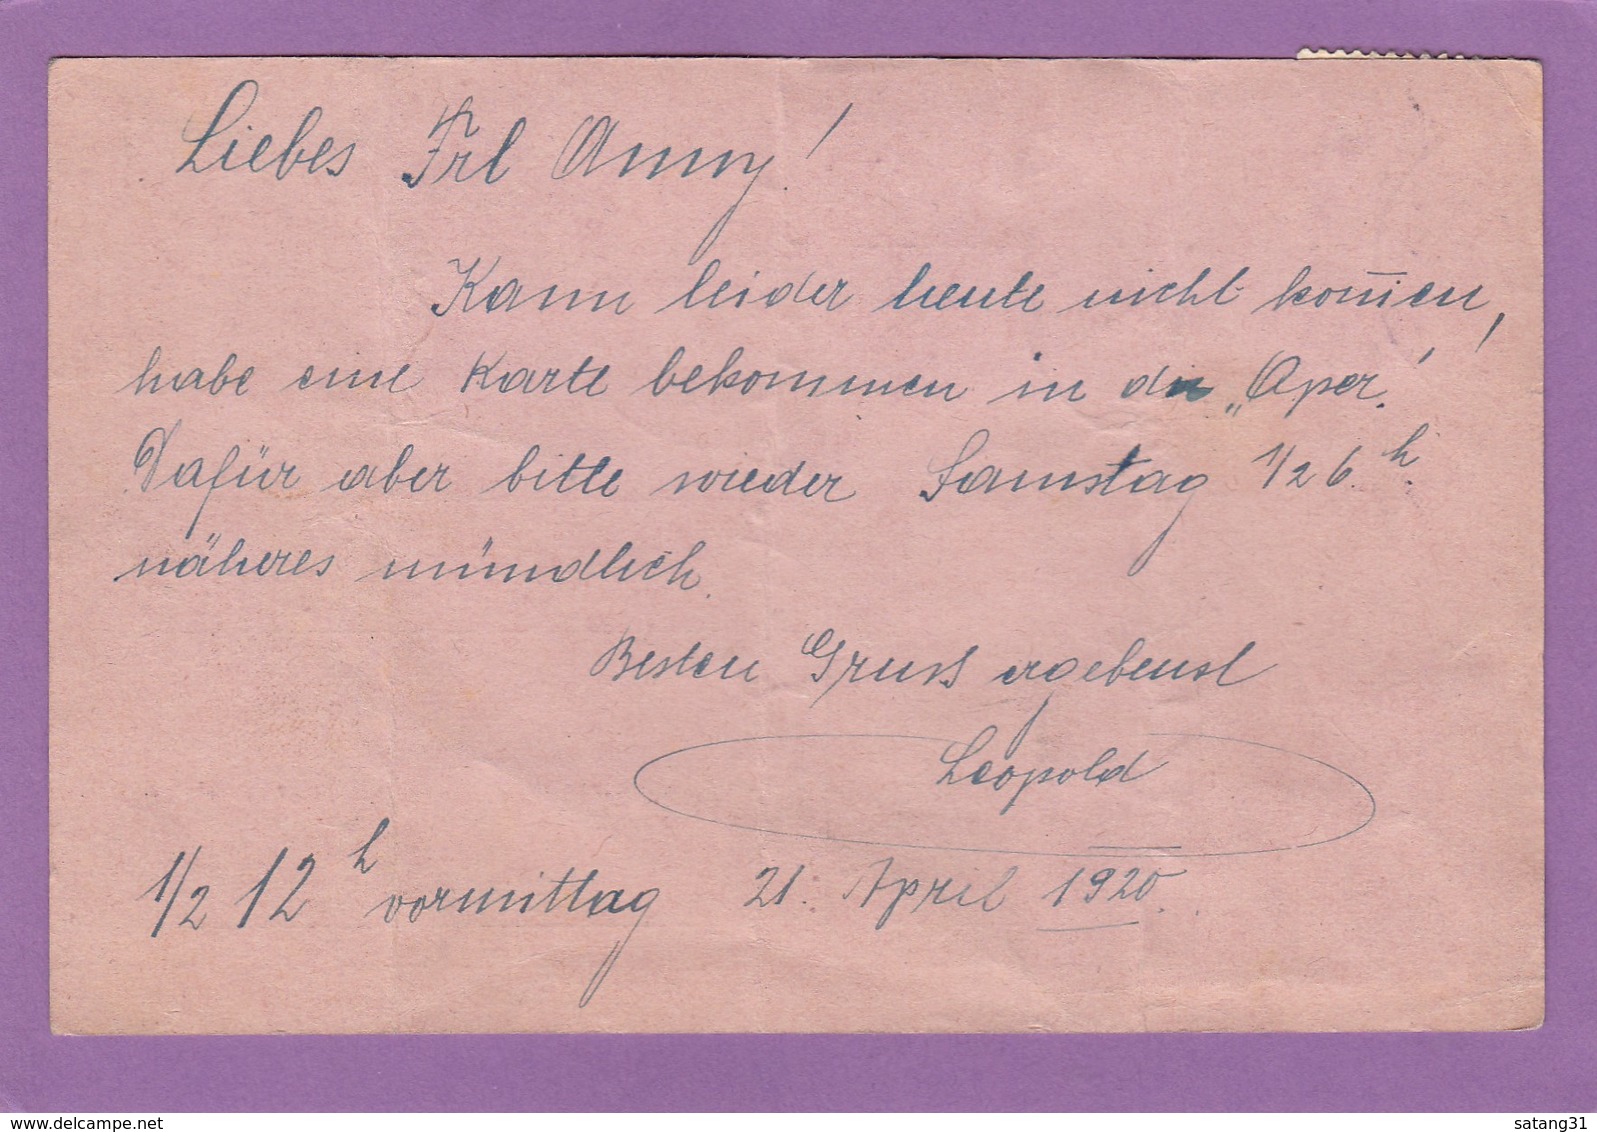 Liebes Frl Anny!
Kann leider heute nicht kom̅en,
habe eine Karte bekommen in die „Oper“!
Dafür aber bitte wieder Samstag 1/2 6 h.
näheres mündlich.
Besten Gruß ergebenst
Leopold
1/2 12 h vormittag 21. April 1920.
www.delcampe.net
satang31